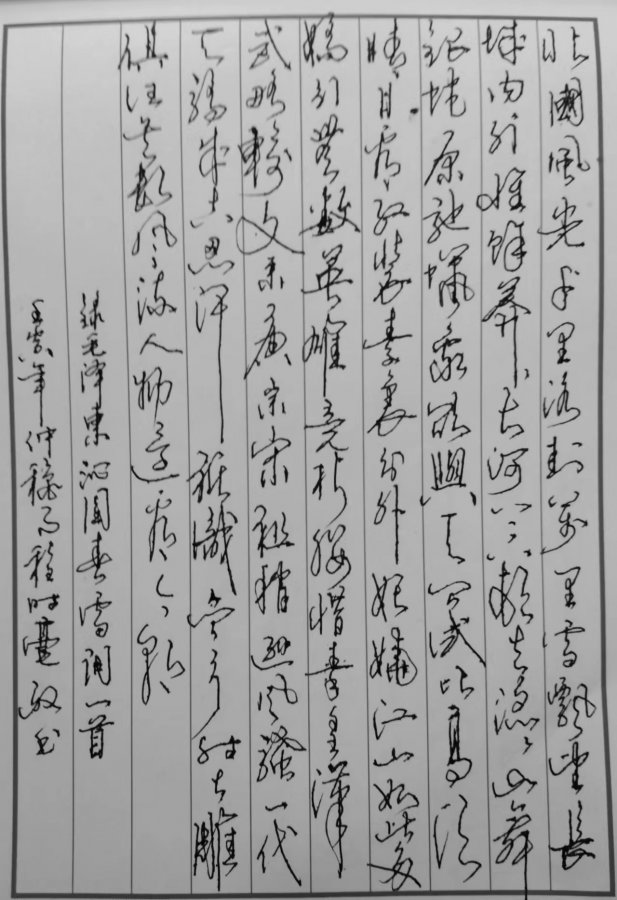 北國風光千里冰封萬里雪飄望長
城内外惟餘莽莽大河上下頓失滔滔山舞
銀蛇原馳蠟象欲與天公試比高須
晴日看紅裝素裹分外妖嬈江山如此多
嬌引無數英雄競折腰惜秦皇漢
武略輸文采唐宗宋祖稍遜風騷一代
天驕成吉思汗祇識彎弓射大雕
俱往矣數風流人物還看今朝
錄毛澤東沁園春雪詞一首
壬寅年仲穐